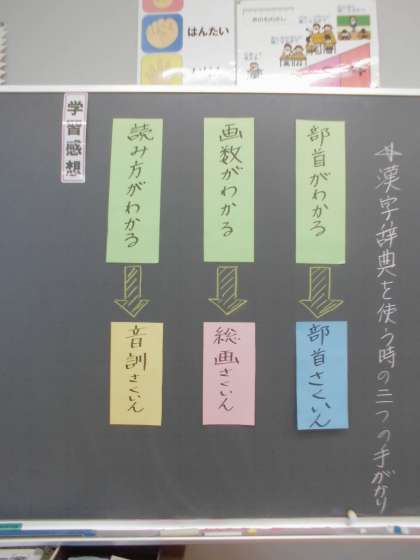 はんたい
漢字辞典を使う時の三つの手がかり
部首がわかる
部首さくいん
画数がわかる
総画さくいん
読み方がわかる
音訓さくいん
学習感想